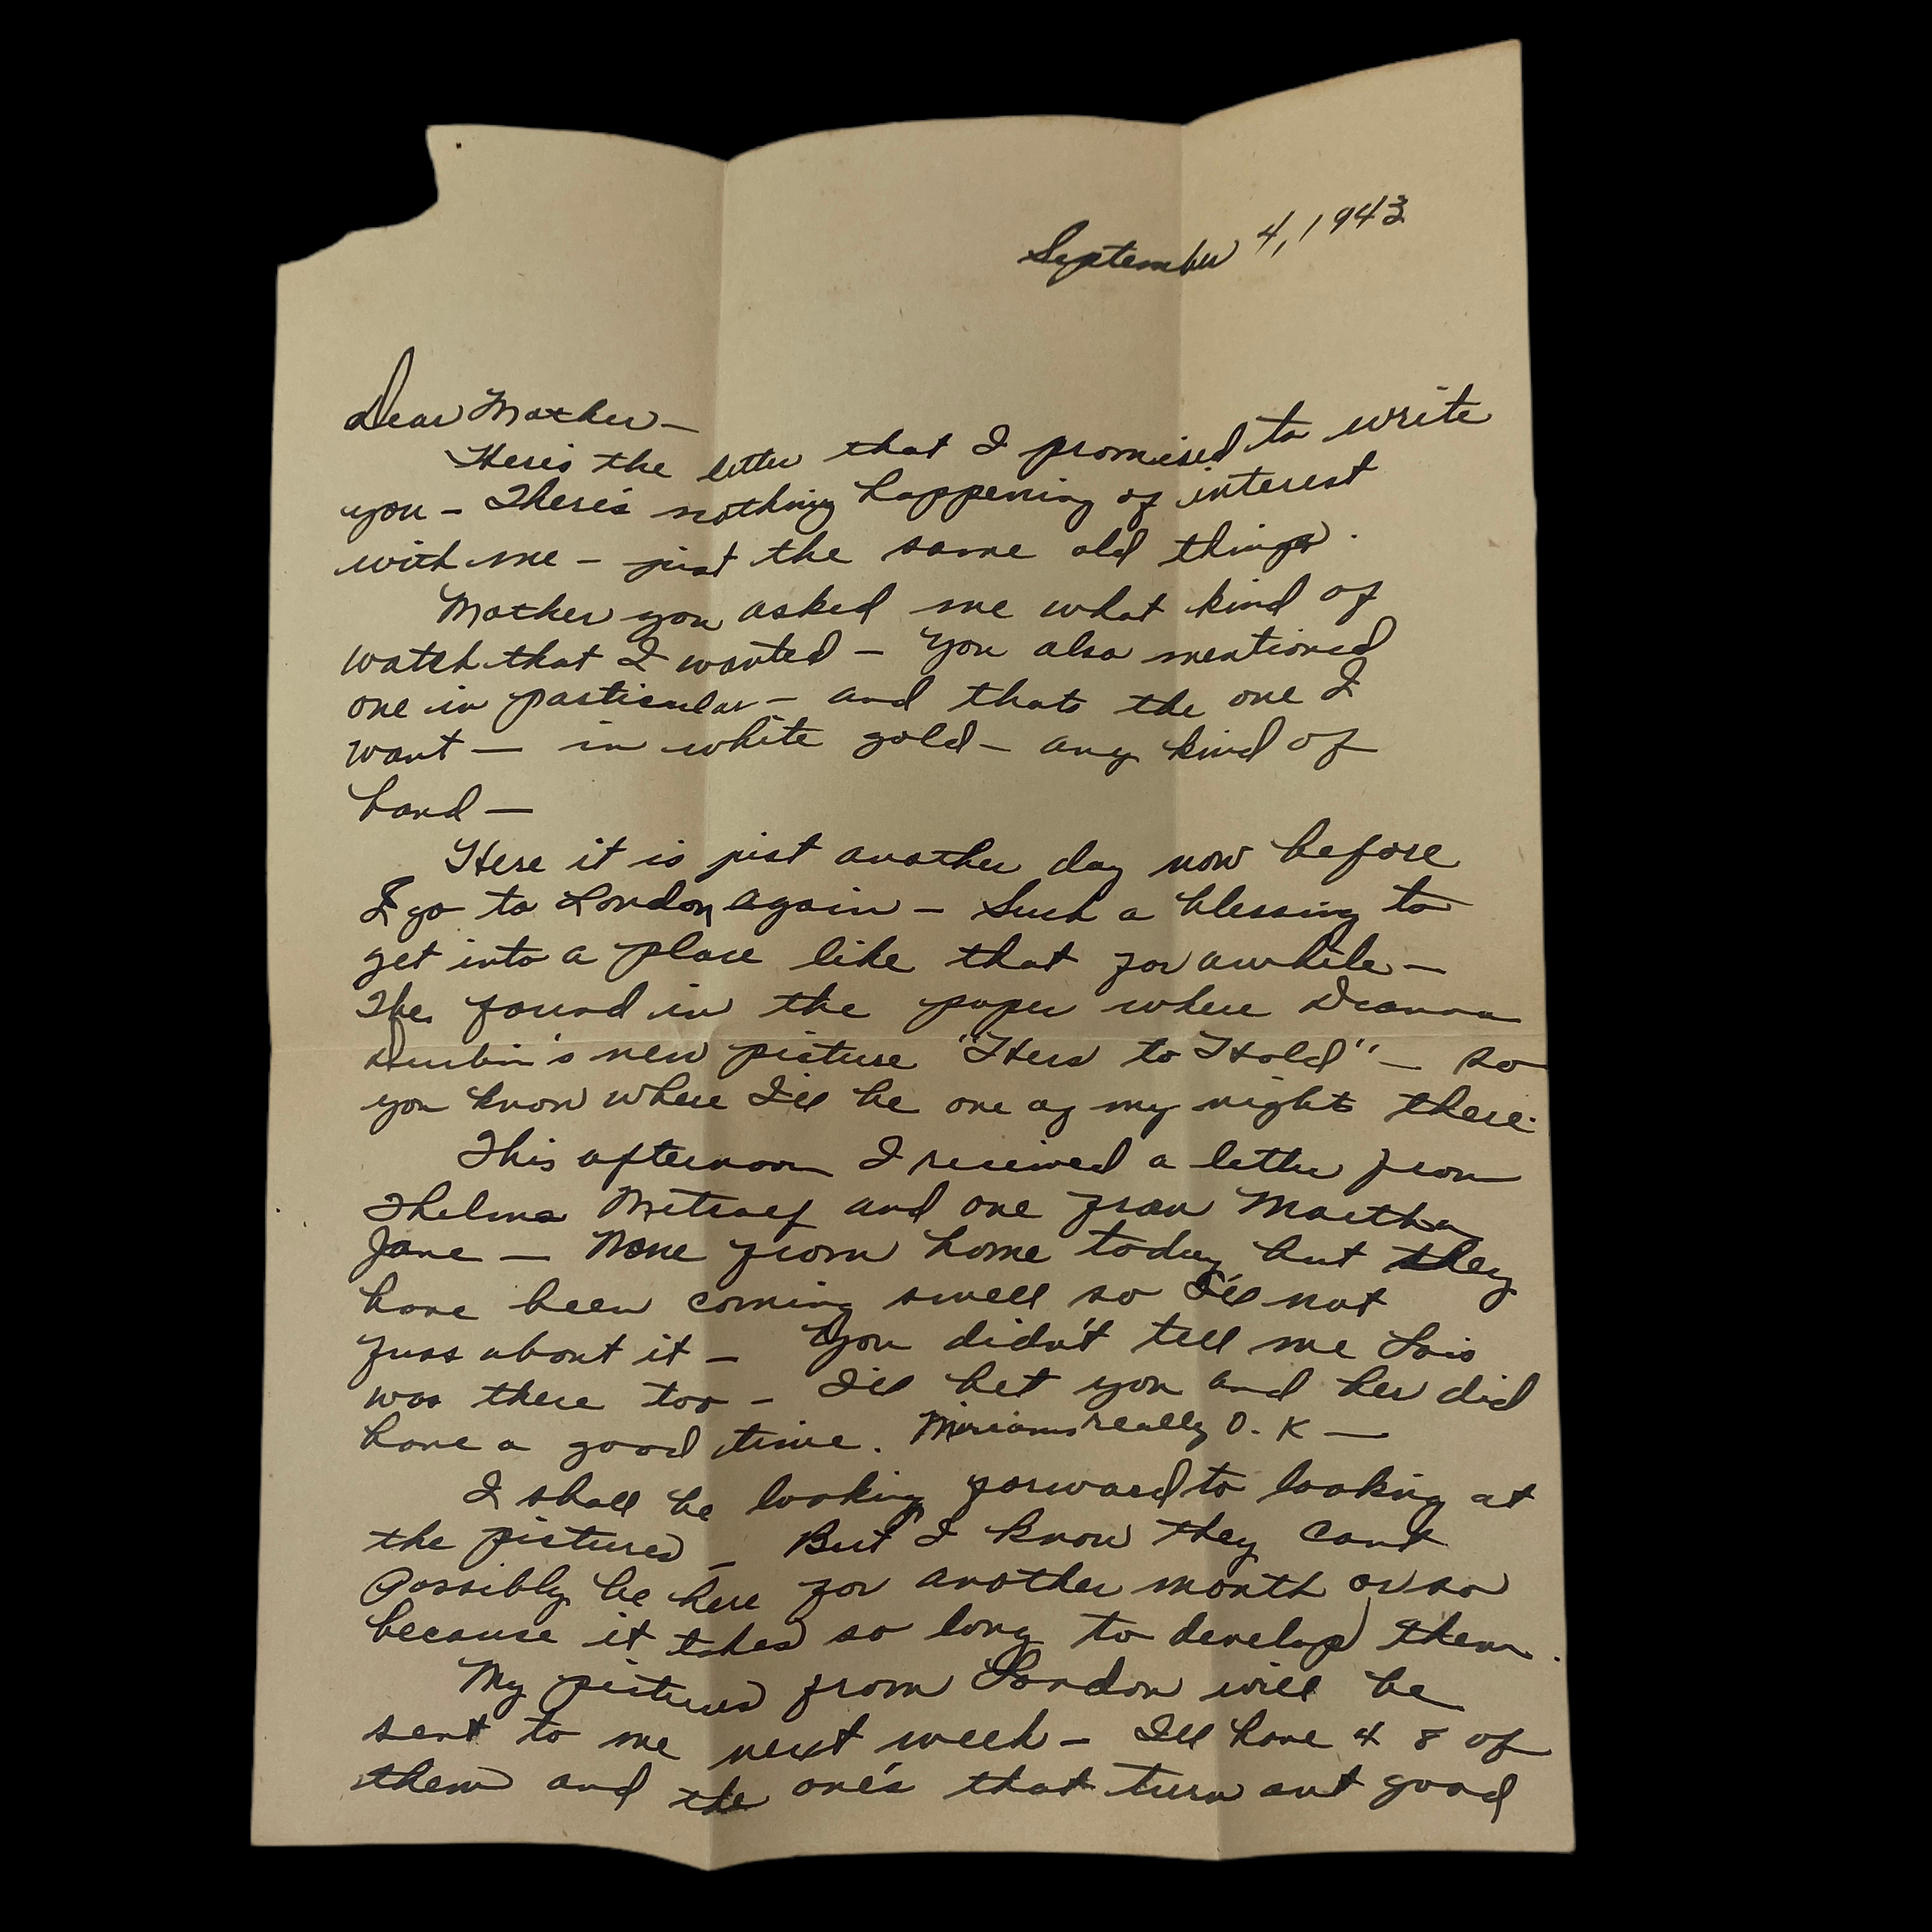 September 4, 1943
Dear Mother —
Here's the letter that I promised to write
you — There's nothing happening of interest
with me — just the same old things.
Mother you asked me what kind of
watch that I wanted — You also mentioned
one in particular — and thats the one I
want — in white gold — any kind of
band —
Here it is just another day now before
I go to London again — Such a blessing to
get into a place like that for awhile —
I've found in the paper where Deanna
Durbin's new picture "Hers to Hold" — so
you know where I'll be one of my nights there.
This afternoon I received a letter from
Thelma Metcalf and one from Martha
Jane — None from home today but they
have been coming swell so I'll not
fuss about it — You didn't tell me Lois
was there too — I'll bet you and her did
have a good time. Miriams really O.K —
I shall be looking forward to looking at
the pictures — But I know they cant
possibly be here for another month or so
because it takes so long to develop them.
My pictures from London will be
sent to me next week — I'll have 48 of
them and the one's that turn out good